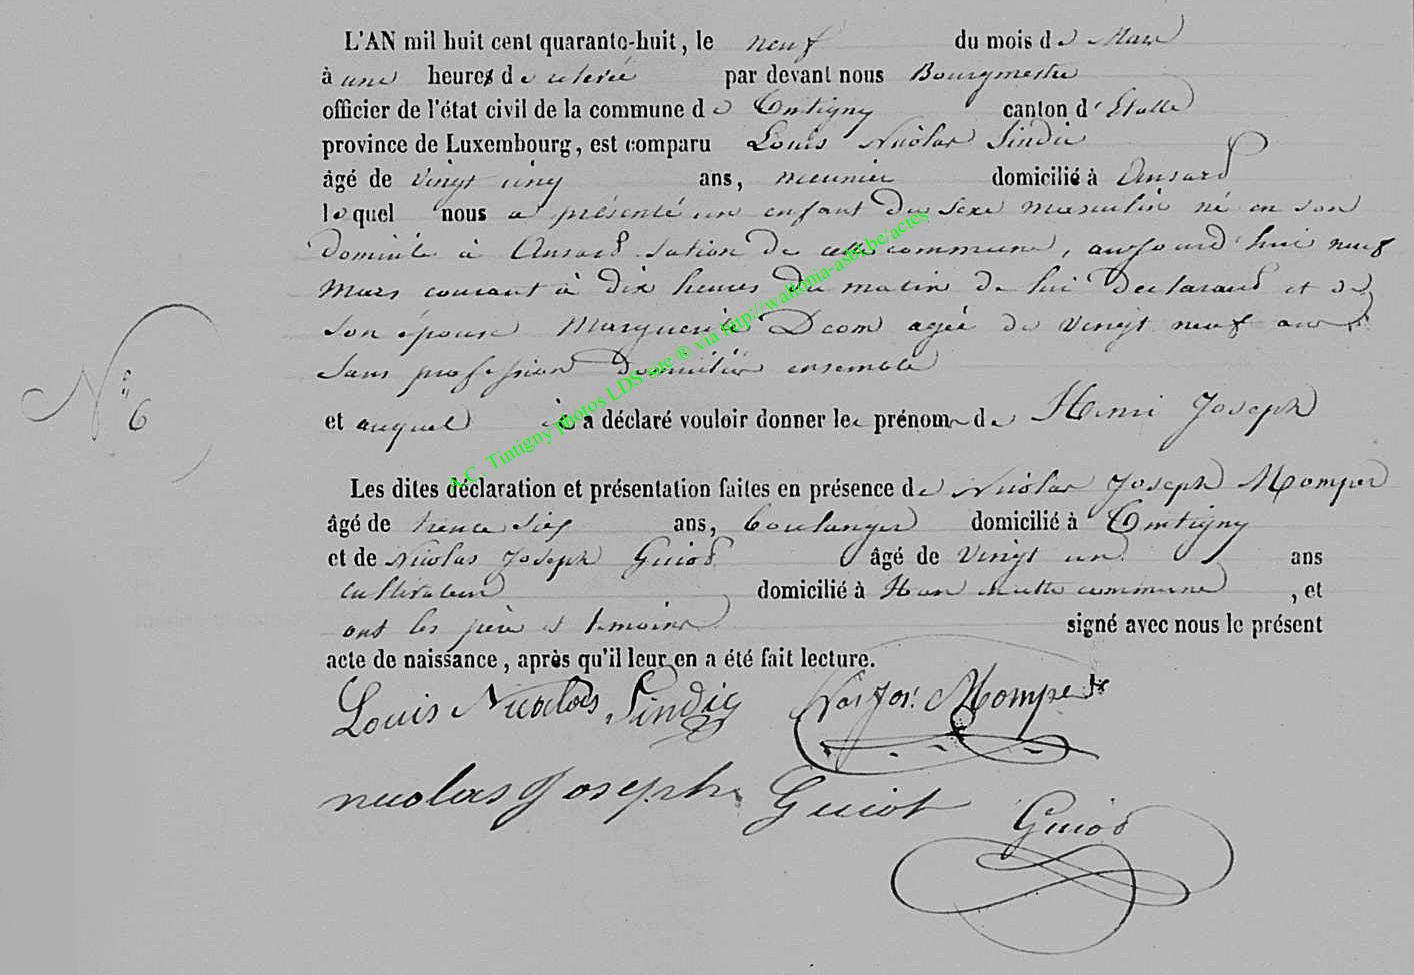 L'AN mil huit cent quarante-huit, le neuf du mois de Mars
à une heures de relevée par devant nous Bourgmestre
officier de l'état civil de la commune de Tintigny canton d'Etalle
province de Luxembourg, est comparu Louis Nicolas Sindic
âgé de vingt cinq ans, meunier domicilié à Ansard
lequel nous a présenté un enfant du sexe masculin né en son
domicile à Ansard section de cette commune, aujourd'hui neuf
Mars courant à dix heures du matin de lui declarant et de
son épouse Marguerite Dcom agée de vingt neuf ans
sans profession domiciliés ensemble
N° 6
et auquel il a déclaré vouloir donner les prénoms de Henri Joseph
Les dites déclaration et présentation faites en présence de Nicolas Joseph Momper
âgé de trente six ans, boulanger domicilié à Tintigny
et de Nicolas Joseph Guiot âgé de vingt un ans
cultivateur domicilié à Han cette commune, et
ont les père et témoins signé avec nous le présent
acte de naissance, après qu'il leur en a été fait lecture.
Louis Nicolas Sindic Nas Jos. Momper
nicolas Joseph Guiot Guiot
A.C. Tintigny photos LDS site ® via http://wallonia-asbl.be/actes